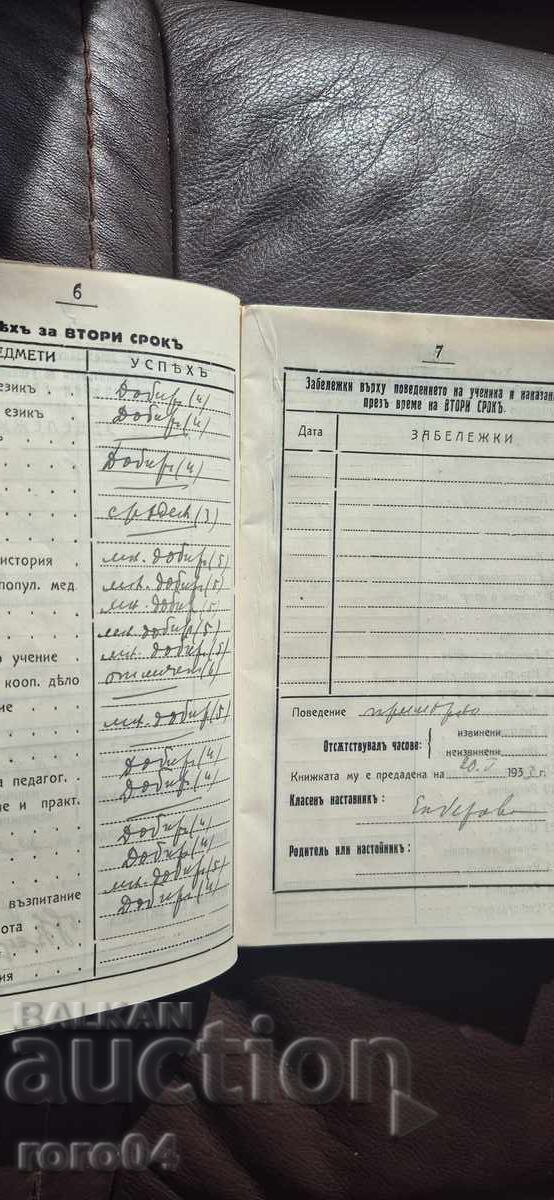 6
ѢХЪ за ВТОРИ СРОКЪ
ЕДМЕТИ УСПѢХЪ
езикъ . . Добъръ (4)
езикъ . . Добъръ (4)
Добъръ (4)
срѣденъ (3)
история . мн. добъръ (5)
попул. мед мн. добъръ (5)
мн. добъръ (5)
мн. добъръ (5)
о учение . мн. добъръ (5)
кооп. дѣло отличенъ (6)
ние . . мн. добъръ (5)
Добъръ (4)
а педагог. . Добъръ (4)
не и практ.
Добъръ (4)
Добъръ (4)
мн. добъръ (5)
възпитание Добъръ (4)
ота . .
ия . . .
7
Забележки върху поведението на ученика и наказан
презъ време на ВТОРИ СРОКЪ.
Дата ЗАБЕЛЕЖКИ
Поведение примѣрно
Отсѫтствувалъ часове: { извинени
неизвинени
Книжката му е предадена на 20.V 193
Класенъ наставникъ:
Родитель или настойникъ:
BALKAN
auction
roro04